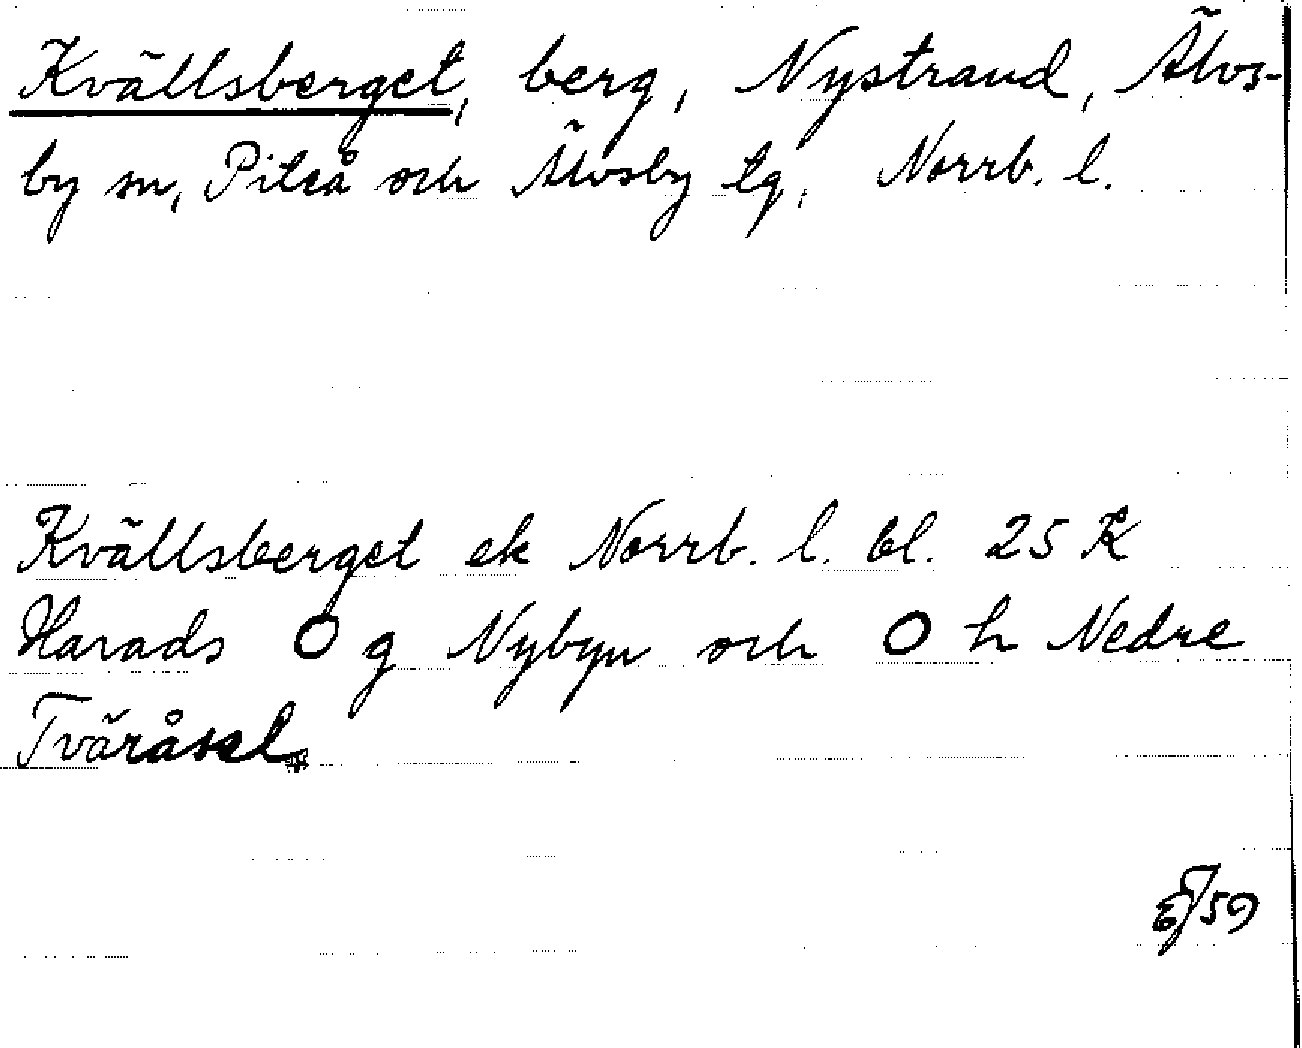 Kvällsberget, berg, Nystrand, Älvs-
by sn, Piteå och Älvsby tg, Norrb. l.
Kvällsberget ek Norrb. l. bl. 25 K
Harads O g Nybyn och O h Nedre
Tväråsel.
/59